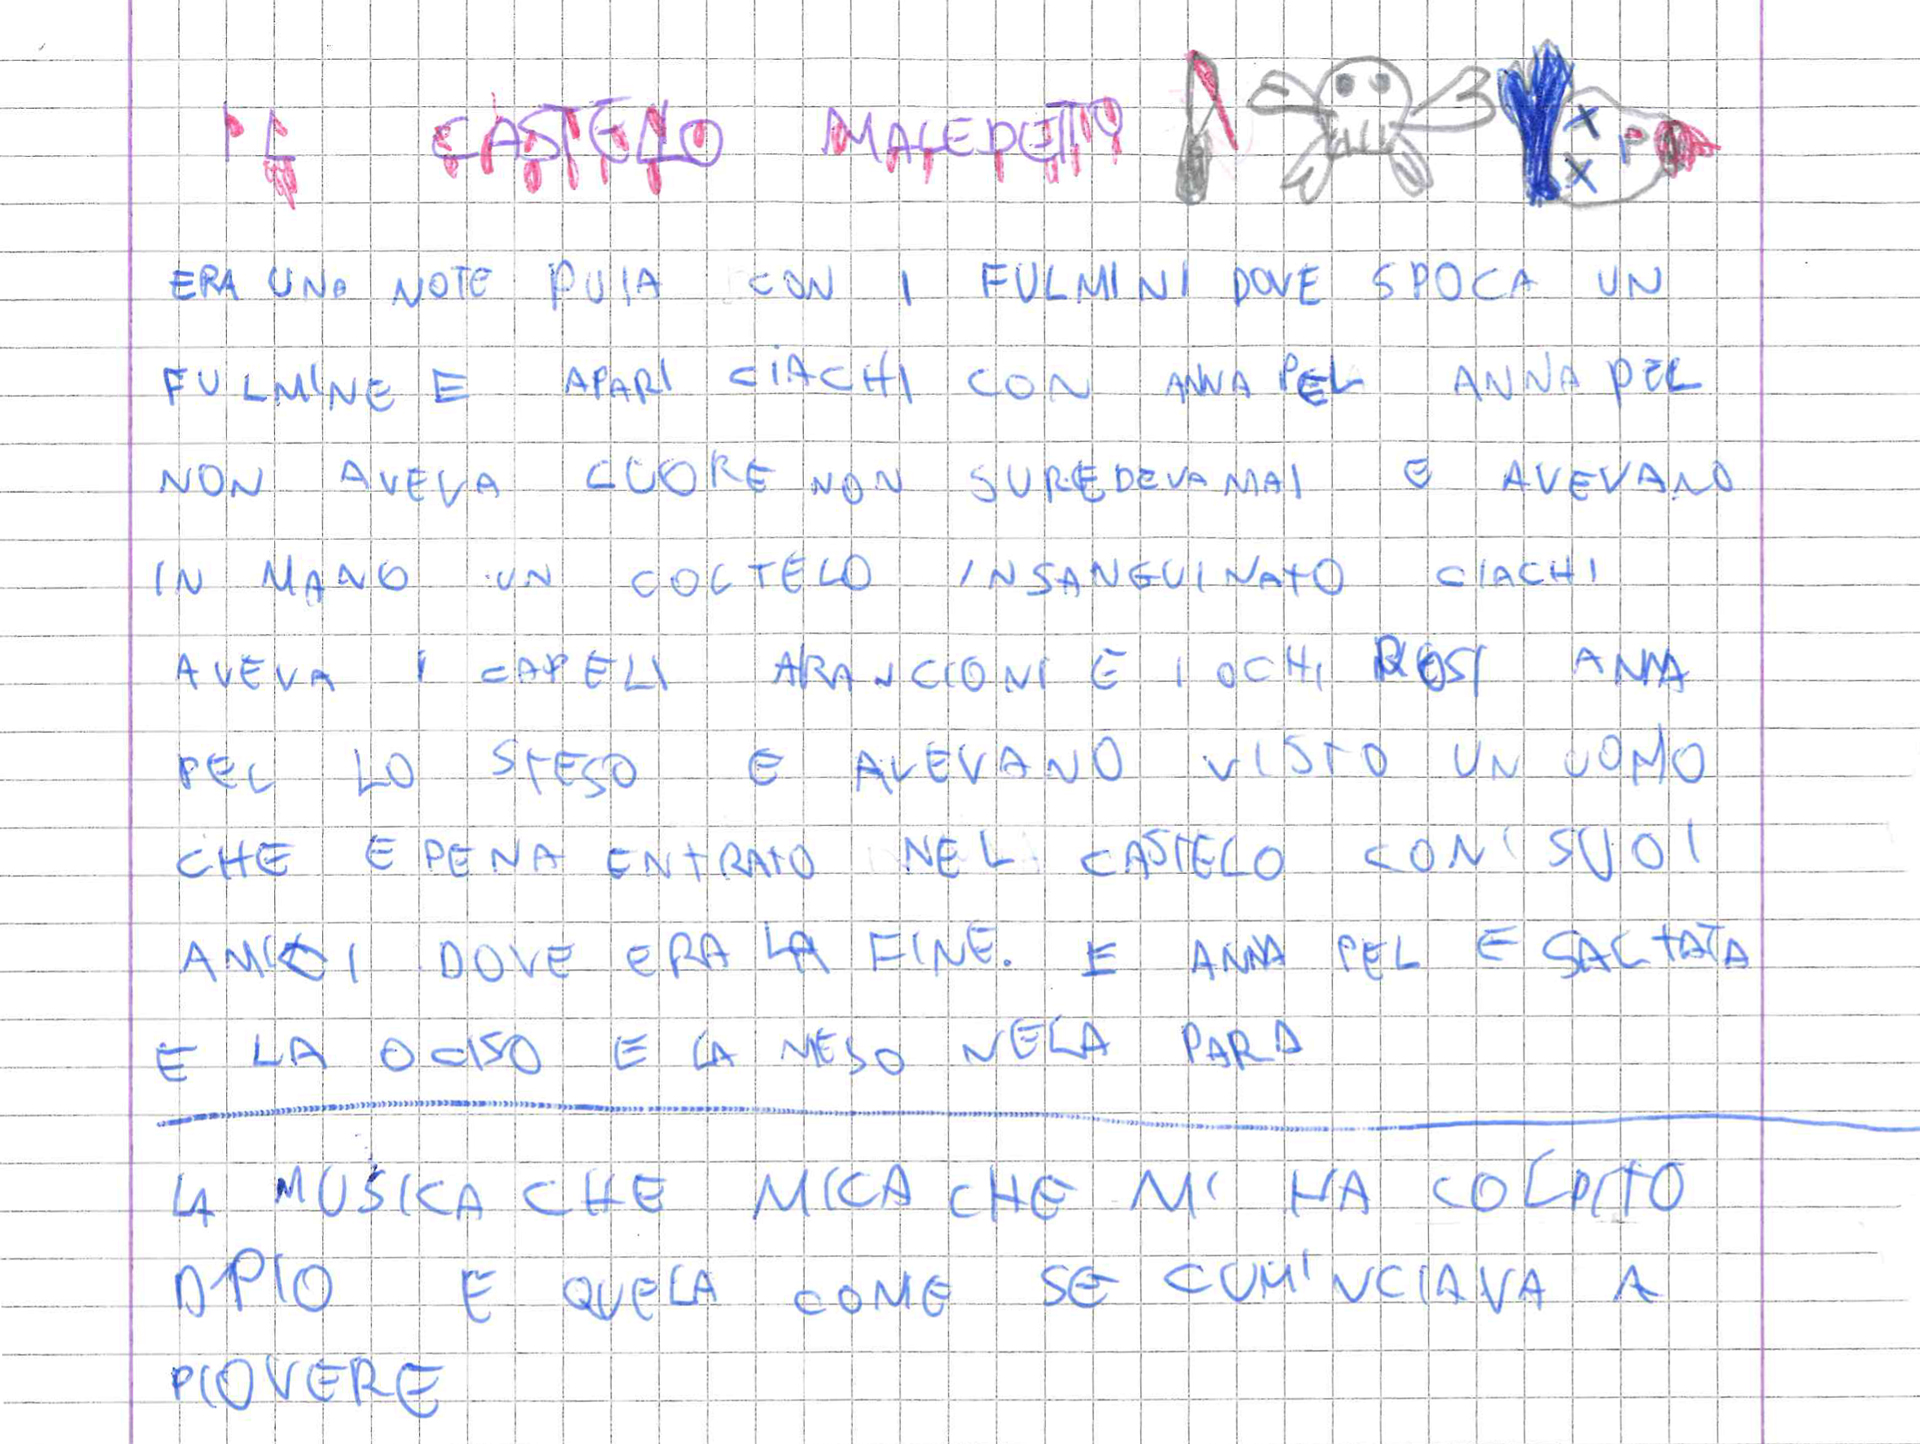 IL CASTELO MALEDETTO
ERA UNA NOTE PUIA CON I FULMINI DOVE SPOCA UN
FULMINE E APARI CIACHI CON ANNA PEL ANNA PEL
NON AVEVA CUORE NON SUREDEVA MAI E AVEVANO
IN MANO UN COLTELO INSANGUINATO CIACHI
AVEVA I CAPELI ARANCIONI E I OCHI ROSI ANNA
PEL LO STESO E AVEVANO VISTO UN UOMO
CHE E PENA ENTRATO NEL CASTELO CON I SUOI
AMICI DOVE ERA LA FINE. E ANNA PEL E SALTATA
E LA OCISO E LA MESO NELA PARA
LA MUSICA CHE MICA CHE MI HA COLPITO
DPIO E QUELA COME SE CUMINCIAVA A
PIOVERE